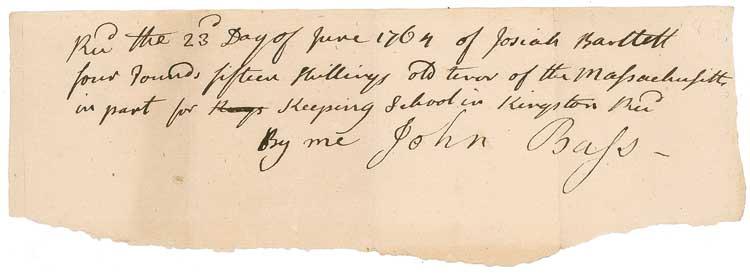 Recd the 23d Day of June 1764 of Josiah Bartlett
four Pounds fifteen Shillings old tenor of the Massachusitts
in part for Keeping School in Kingston Recd
By me John Bass